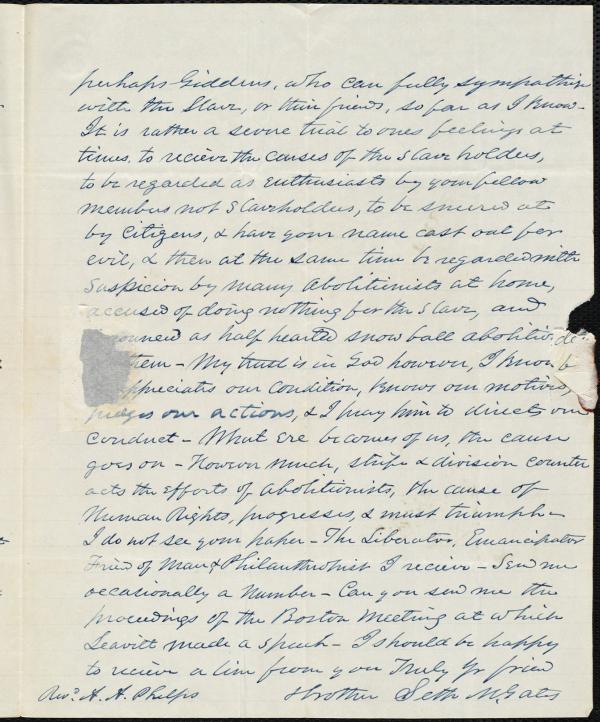 perhaps Giddins, who can fully sympathise
with the Slave, or their friends, so far as I know-
It is rather a severe trial to ones feelings at
times, to recieve the curses of the slave holders,
to be regarded as Enthusiasts by your fellow
members not Slaveholders, to be sneered at
by Citizens, & have your name cast out for
evil, & then at the same time be regarded with
Suspicion by many Abolitionists at home,
accused of doing nothing for the Slave, and
as half hearted snow ball abolition
them - My trust is in God however, I know
appreciates our condition, knows our motives,
judges our actions, & I pray him to direct our
Conduct - What ere becomes of us, the cause
goes on - However much, strife & division counter
acts the efforts of abolitionists, the cause of
Human Rights, progresses, & must triumph -
I do not see your paper - The Liberator, Emancipator
Friend of Man & Philanthropist I recieve - Send me
occasionally a Number - Can you send me the
proceedings of the Boston Meeting at which
Leavitt made a speech - I should be happy
to recieve a line from you Truly Yr friend
Revd. A. A. Phelps & brother Seth M. Gates